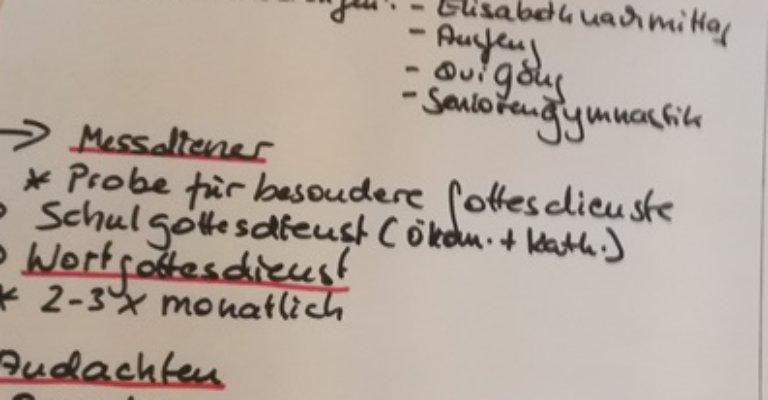 : - Elisabethnachmittag
-
- Qui gong
- Seniorengymnastik
→ Messdiener
* Probe für besondere Gottesdienste
Schulgottesdienst (ökom. + kath.)
Wortgottesdienst
* 2-3 x monatlich
Andachten